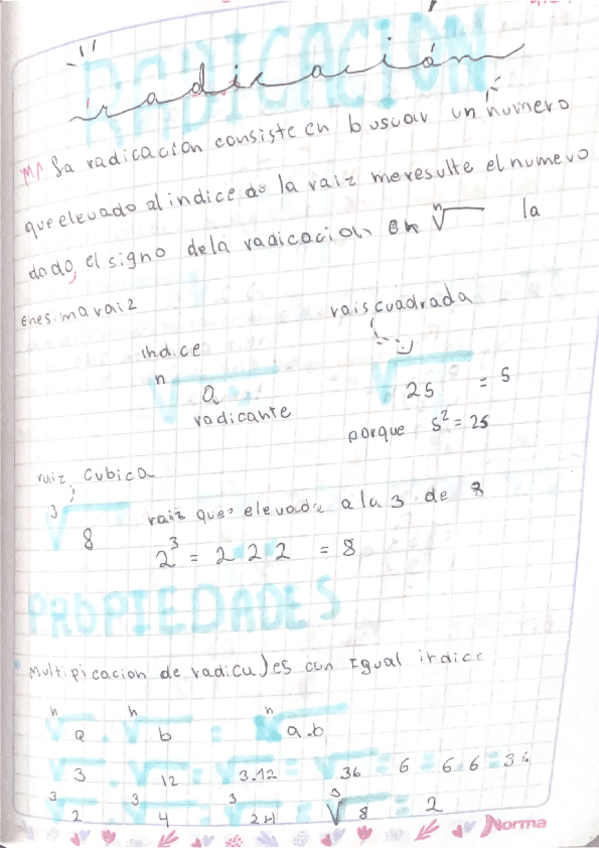 RADICACIÓN
radicación
M/ La radicación consiste en buscar un número
que elevado al indice de la raiz me resulte el numero
dado, el signo de la radicación en ⁿ√ la
enesima raiz
rais cuadrada
indice
ⁿ√a
radicante
√25 = 5
porque 5² = 25
raiz cubica
³√8
raiz que elevade a la 3 de 8
2³ = 2·2·2 = 8
PROPIEDADES
Multipicacion de radicales con Igual indice
ⁿ√a · ⁿ√b = ⁿ√a.b
√3 · √12 = √3.12 = √36 = 6 = 6·6=36
³√2 · ³√4 = ³√2·4 = ³√8 = 2
Norma